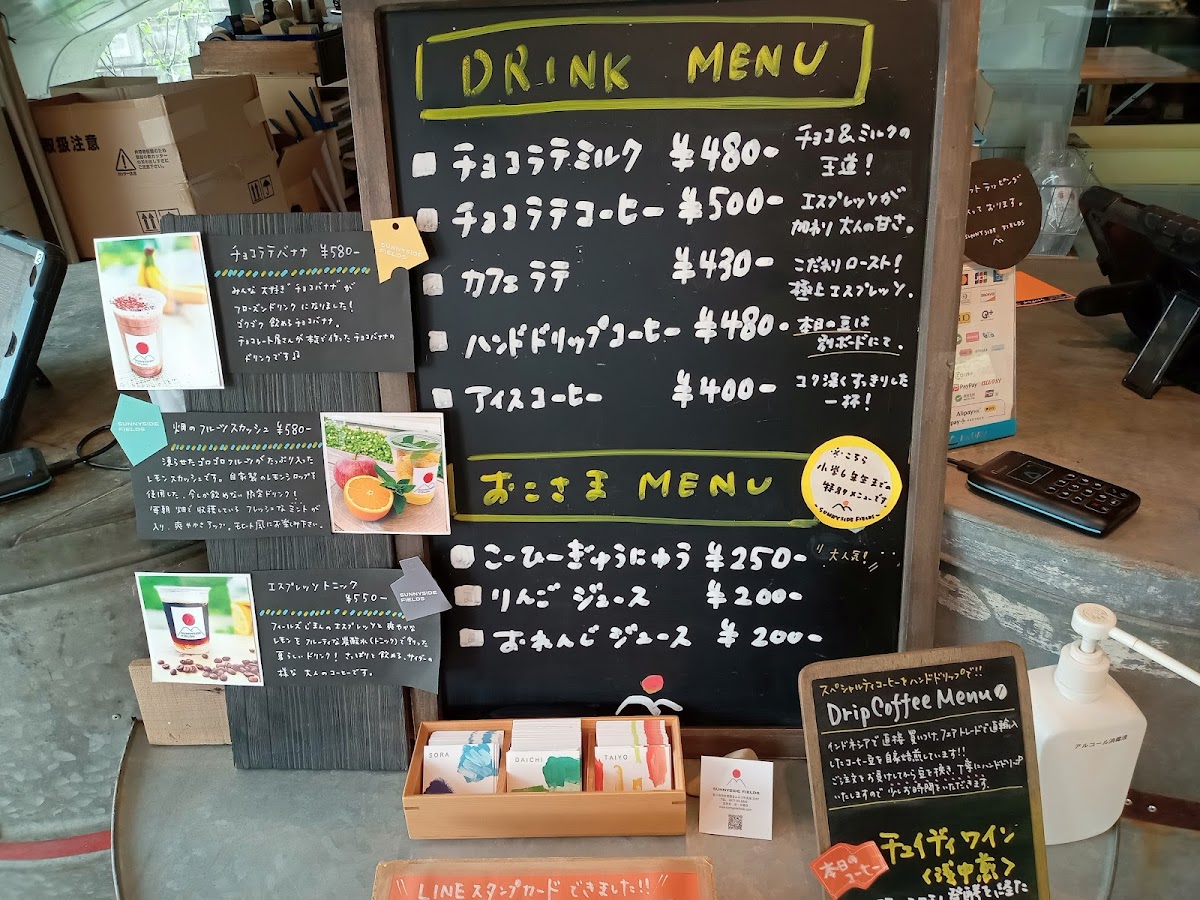 DRINK MENU
チョコラテミルク ¥480-
チョコ&ミルクの
王道!
チョコラテコーヒー ¥500-
エスプレッソが
加わり大人の甘さ。
カフェラテ ¥430-
こだわりロースト!
極上エスプレッソ。
ハンドドリップコーヒー ¥480-
本日の豆は
別ボードにて。
アイスコーヒー ¥400-
コク深くすっきりした
一杯!
おこさま MENU
※こちら
小学6年生までの
特別メニューです
SUNNYSIDE FIELDS
大人気!
こーひーぎゅうにゅう ¥250-
りんごジュース ¥200-
おれんじジュース ¥200-
取扱注意
チョコラテバナナ ¥580-
SUNNYSIDE
FIELDS
みんな大好きチョコバナナが
フローズンドリンクになりました!
ゴクゴク飲めるチョコバナナ。
チョコレート屋さんが本気で作ったチョコバナナの
ドリンクです♫
SUNNYSIDE
FIELDS
畑のフルーツスカッシュ ¥580-
凍らせたゴロゴロフルーツがたっぷり入った
レモンスカッシュです。自家製のレモンシロップを
使用した、今しか飲めない限定ドリンク!
毎朝畑で収穫しているフレッシュなミントが
入り、爽やかさアップ。モヒート風にお楽しみ下さい。
エスプレッソトニック
¥550-
SUNNYSIDE
FIELDS
フィールズじまんのエスプレッソと爽やかな
レモンをフルーティな炭酸水(トニック)で割った
夏らしいドリンク!さっぱりと飲める、サイダーの
様な大人のコーヒーです。
SORA
DAICHI
TAIYO
SUNNYSIDE FIELDS
LINEスタンプカードできました!!
スペシャルティコーヒーをハンドドリップで!!
Drip Coffee Menu
インドネシアで直接買いつけ、フェアトレードで直輸入
したコーヒー豆を自家焙煎しています!!
ご注文をお受けしてから豆を挽き、丁寧にハンドドリップ
いたしますので少しお時間をいただきます。
本日の
コーヒー
チェイディワイン
<浅中煎>
アルコール消毒液
SUNNYSIDE FIELDS
PayPay
Alipay